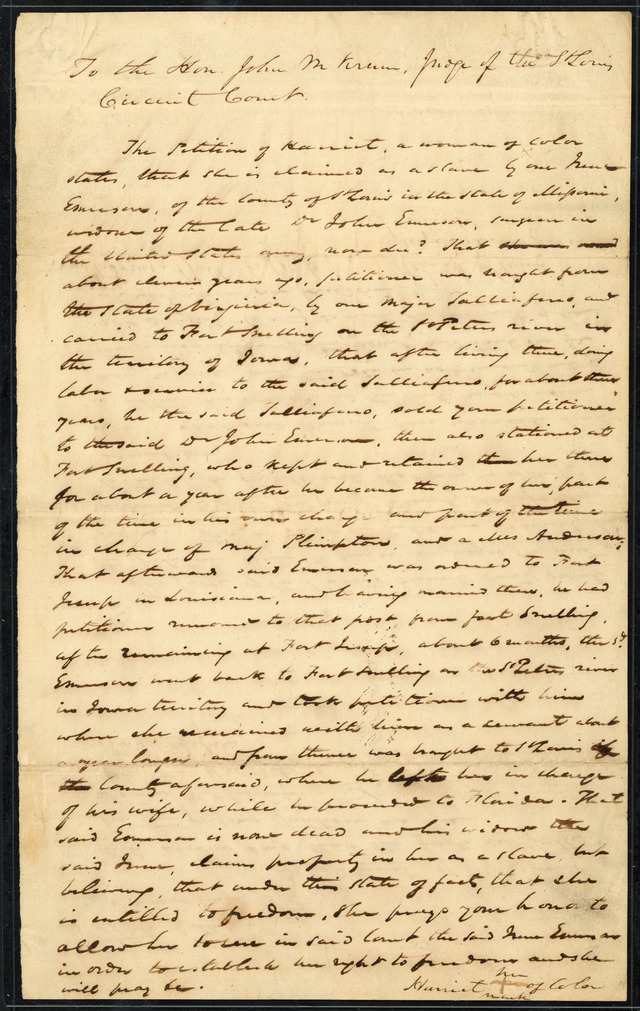 To the Hon. John M Krum, Judge of the St Louis
Circuit Court.
The Petition of Harriet, a woman of color
states, that she is claimed as a slave by one Irene
Emerson, of the County of St Louis in the state of Missouri,
widow of the late Dr John Emerson, surgeon in
the United States army, now decd. That
about eleven years ago, petitioner was bought from
the State of Virginia, by one Major Talliaferro, and
carried to Fort Snelling on the St Peters river in
the territory of Iowa, that after living there, doing
labor & service to the said Talliaferro, for about three
years, he the said Talliaferro, sold your petitioner
to the said Dr John Emerson, then also stationed at
Fort Snelling, who kept and retained her there
for about a year after he became the owner of her, part
of the time in his own charge and part of the time
in charge of maj Plimpton, and a Mrs Anderson,
That afterwards said Emerson was ordered to Fort
Jesup in Louisiana, and having married there, he had
petitioner removed to that post, from fort Snelling,
after remaining at Fort Jesup, about 6 months, the sd.
Emerson went back to Fort Snelling on the St Peters river
in Iowa territory and took petitioner with him
where she remained with him as a servant about
a year longer, and from thence was brought to St Louis
County aforesaid, where he left her in charge
of his wife, while he proceeded to Florida. That
said Emerson is now dead and his widow the
said Irene, claims property in her as a slave, but
believing, that under this state of facts, that she
is entitled to freedom, she prays your honor to
allow her to sue in said Court the said Irene Emerson
in order to establish her right to freedom and she
will pray &c.
Harriet her mark of Color